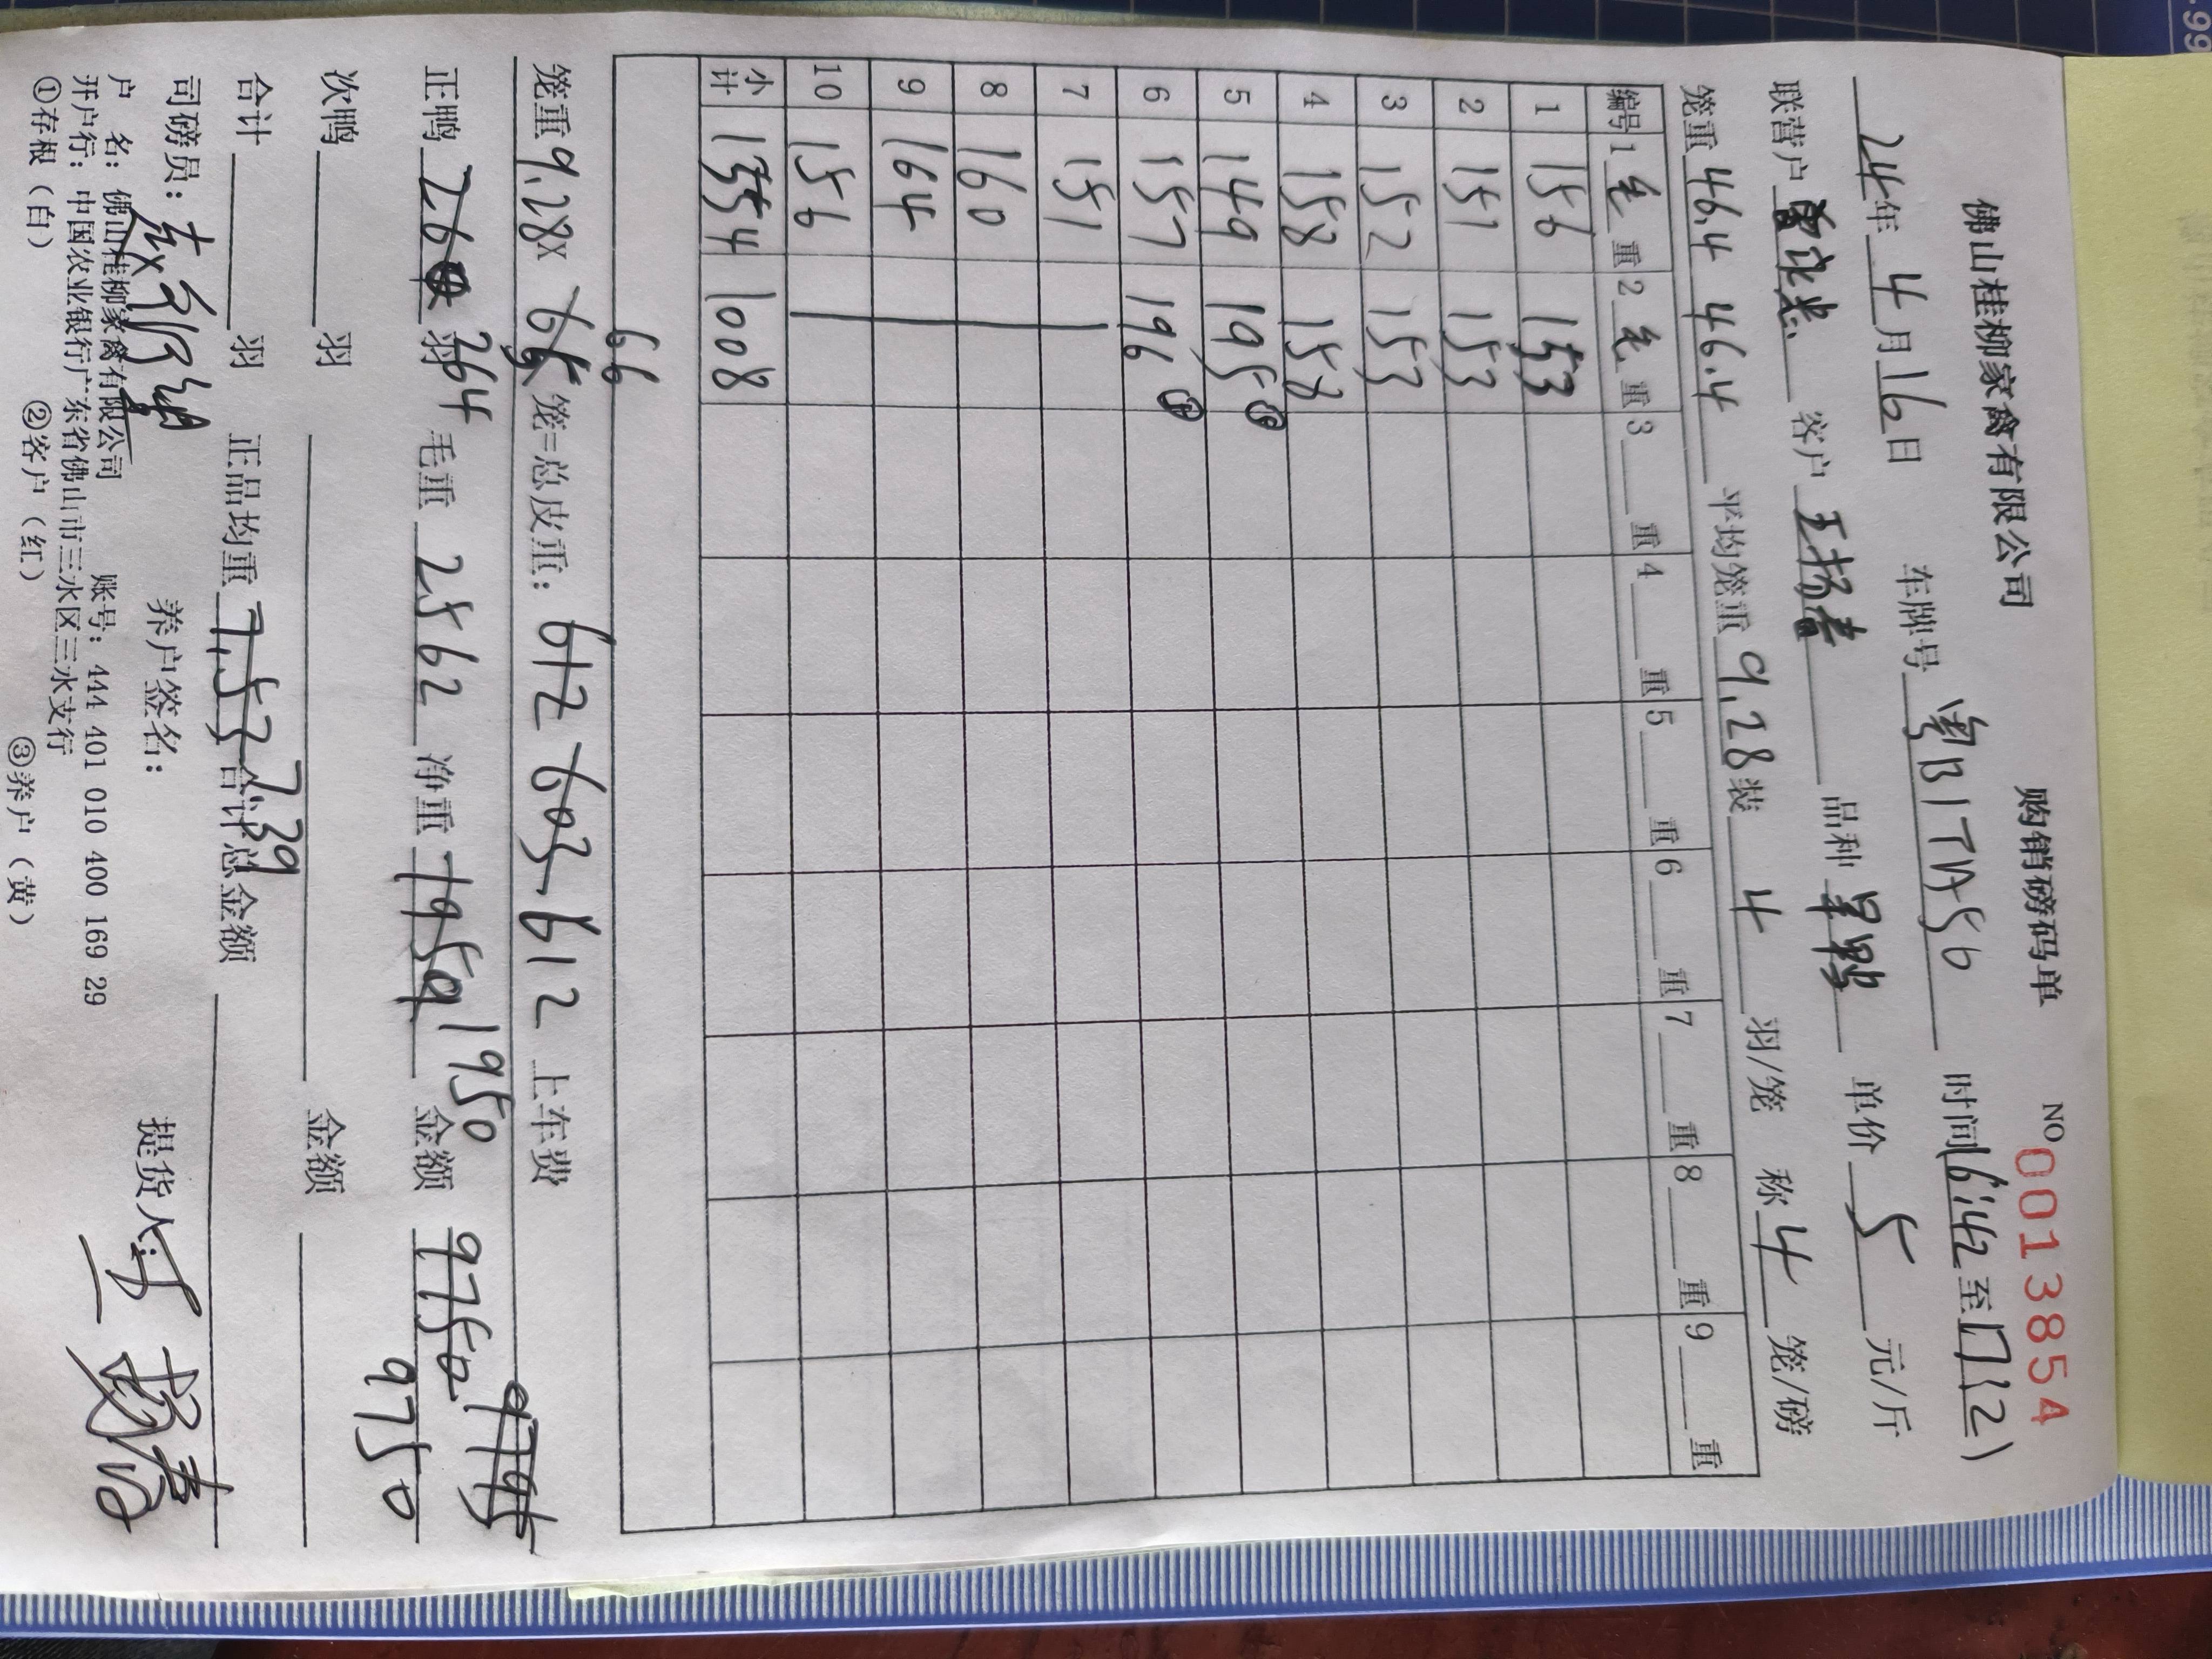 佛山桂柳家禽有限公司 购销磅码单 NO 0013854
24年4月16日 车牌号 粤B1TA56 时间16:42至17:12)
联营户 客户 王扬春 品种 旱鸭 单价 5 元/斤
笼重 46.4 46.4 平均笼重 9.28 装 4 羽/笼 称 4 笼/磅
编号 1 毛 重 2 毛 重 3 重 4 重 5 重 6 重 7 重 8 重 9 重
1 156 153
2 151 153
3 152 153
4 158 158
5 149 195 ⑤
6 157 196 ⑤
7 151
8 160
9 164
10 156
小计 1554 1008
66
笼重 9.28 x 65 笼=总皮重: 612 603 612 上车费
正鸭 26 羽 264 毛重 2562 净重 1959 1950 金额 9750 9795
9750
次鸭 羽 金额
合计 羽 正品均重 7.53 7.39 合计总金额
司磅员: 养户签名: 提货人:
户 名: 佛山桂柳家禽有限公司 账号: 444 401 010 400 169 29
开户行: 中国农业银行广东省佛山市三水区三水支行
①存根(白) ②客户(红) ③养户(黄)